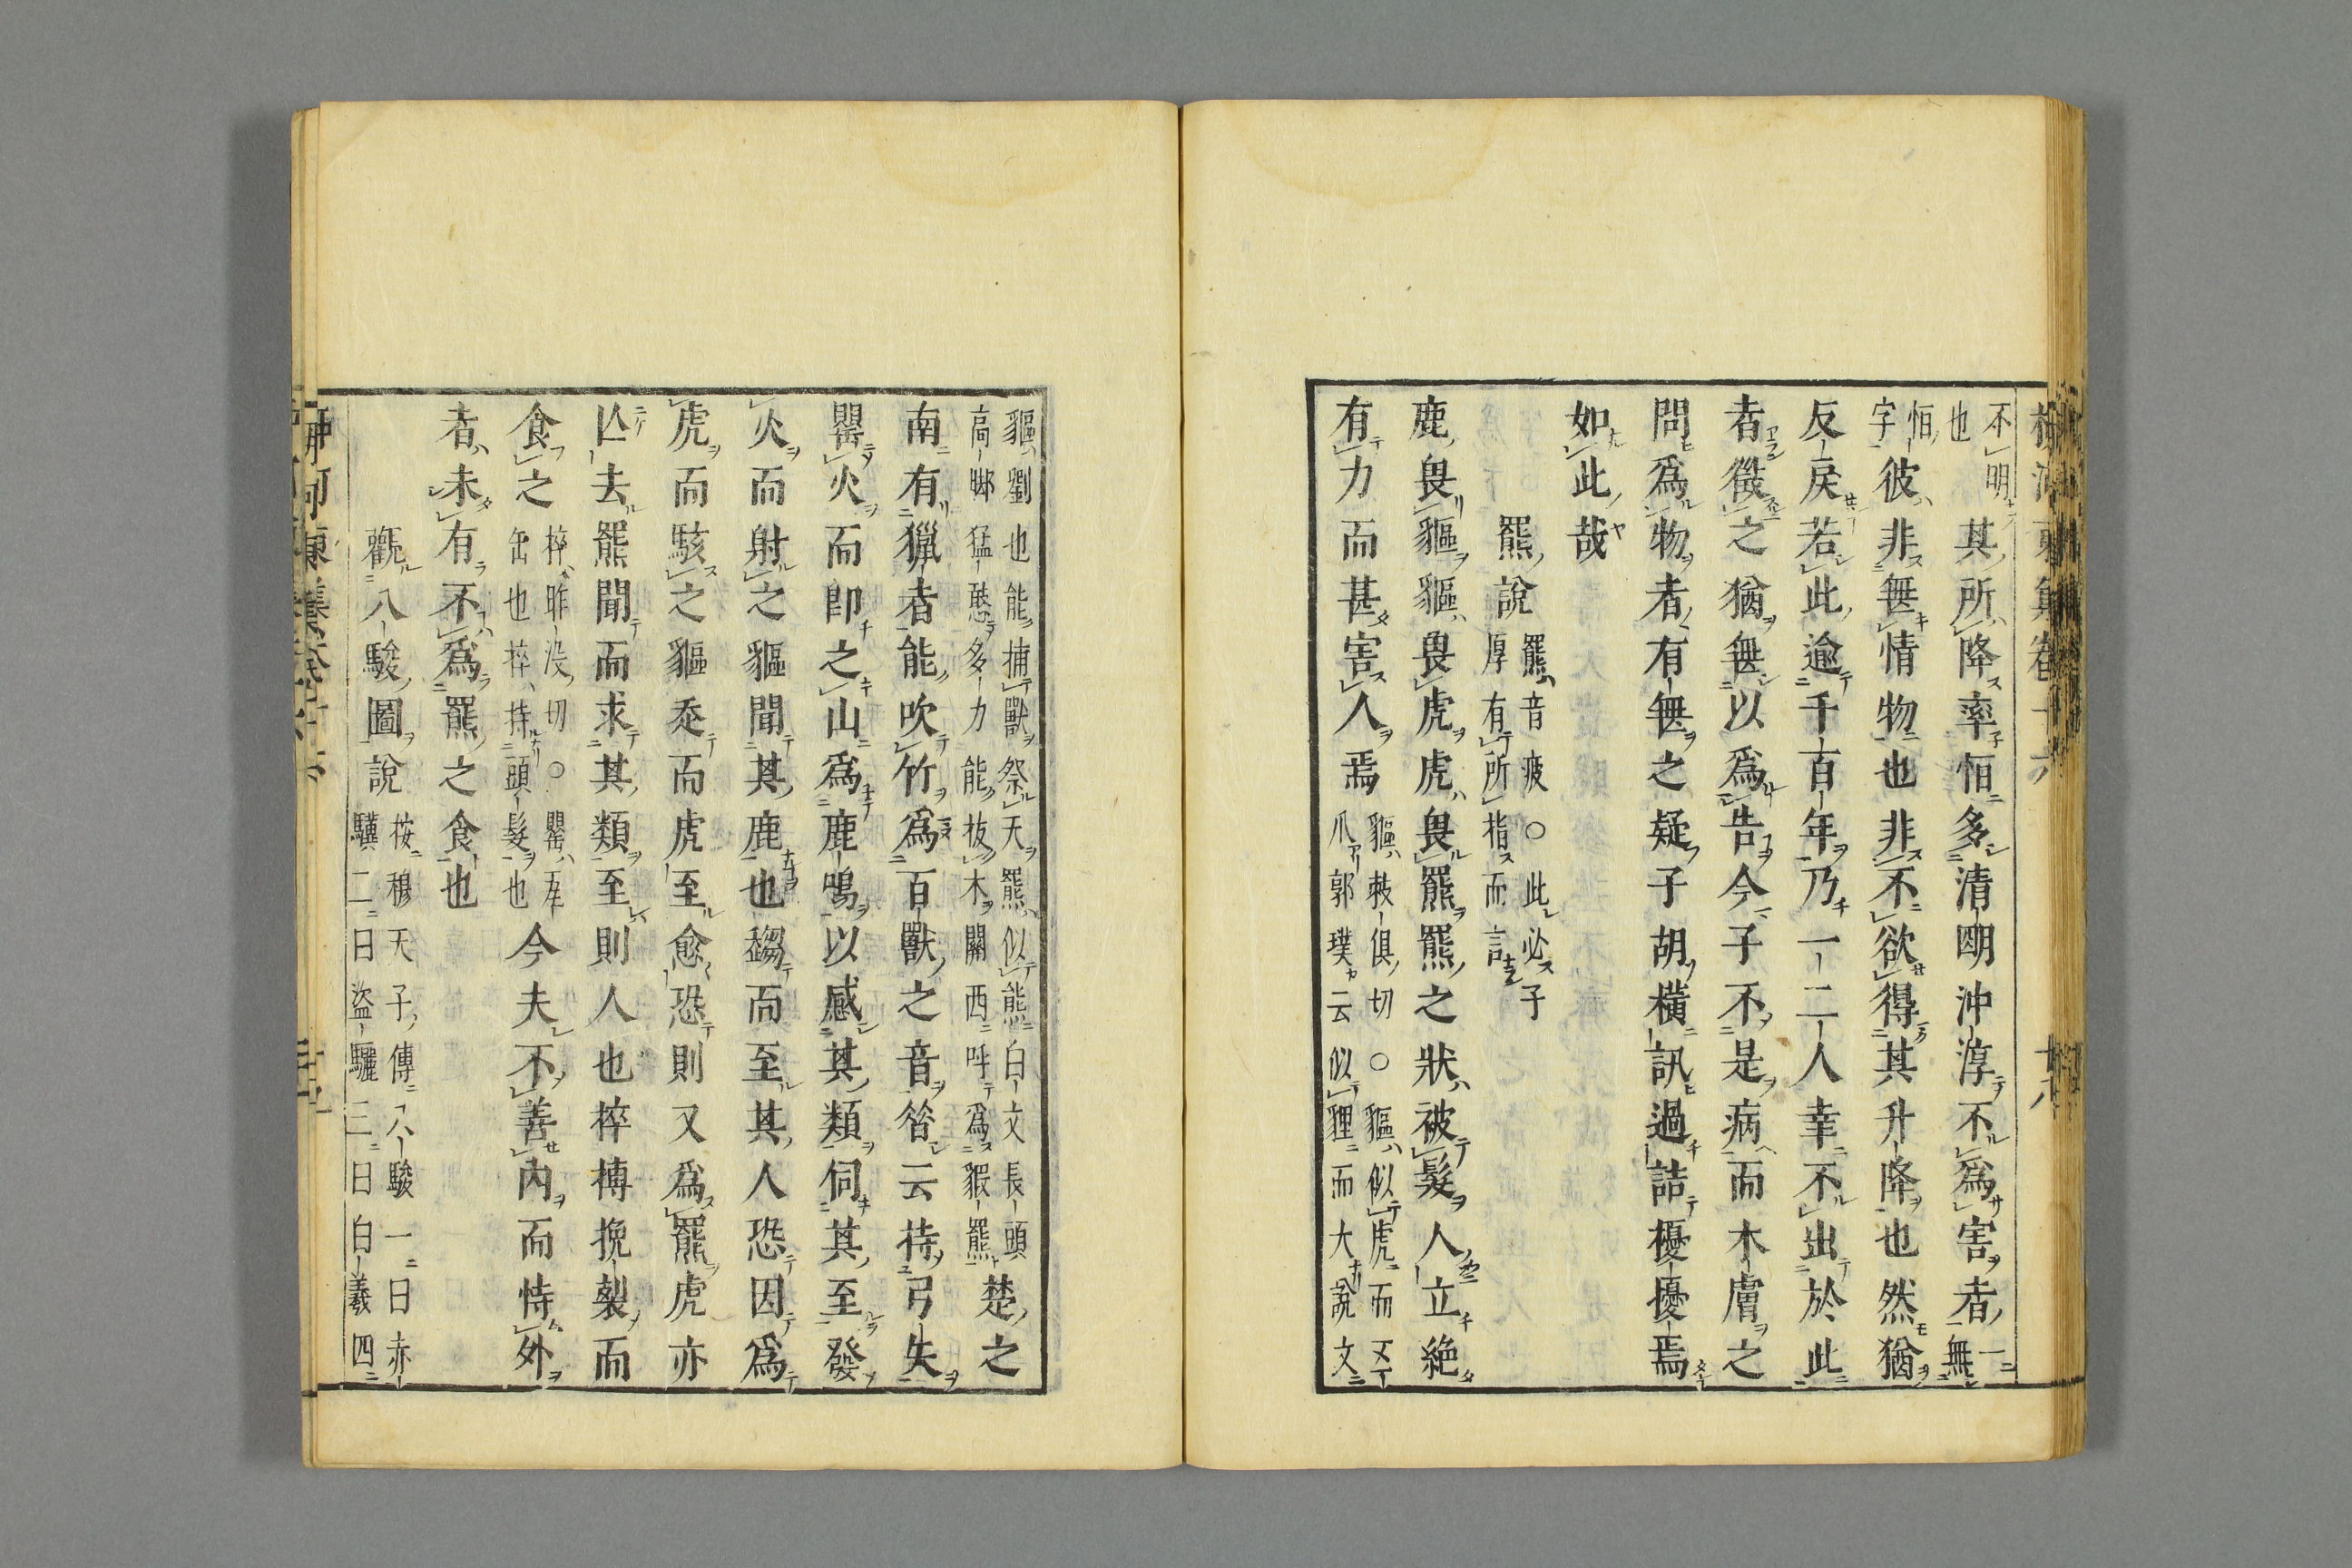 不明
也
其所降率恒多清明沖淳不爲害者
一
無
恒
字
彼非無情物也非不欲得其升降也然猶
反戾若此逾千百年乃一二人幸不出於此
者儗之猶無以爲告今子不是病而木膚之
問爲物者有無之疑子胡橫訊過詰擾擾焉
如此哉
羆說
羆音疲○此必子
厚有所指而言
鹿畏貙貙畏虎虎畏羆羆之狀被髮人立絕
有力而甚害人焉
貙敕俱切○貙似虎而五
爪郭璞云似貍而大說文
貙劉也能捕獸祭天羆似熊白文長頭
高腳猛憨多力能拔木關西呼爲貑羆
楚之
南有獵者能吹竹爲百獸之音昝云持弓矢
罌火而卽之山爲鹿鳴以感其類伺其至發
火而射之貙聞其鹿也趨而至其人恐因爲
虎而駭之貙走而虎至愈恐則又爲羆虎亦
亾去羆聞而求其類至則人也捽搏挽裂而
食之
捽昨没切○罌瓦
缶也捽持頭髮也
今夫不善內而恃外
者未有不爲羆之食也
觀八駿圖說
按穆天子傳八駿一曰赤
驥二曰盜驪三曰白義四